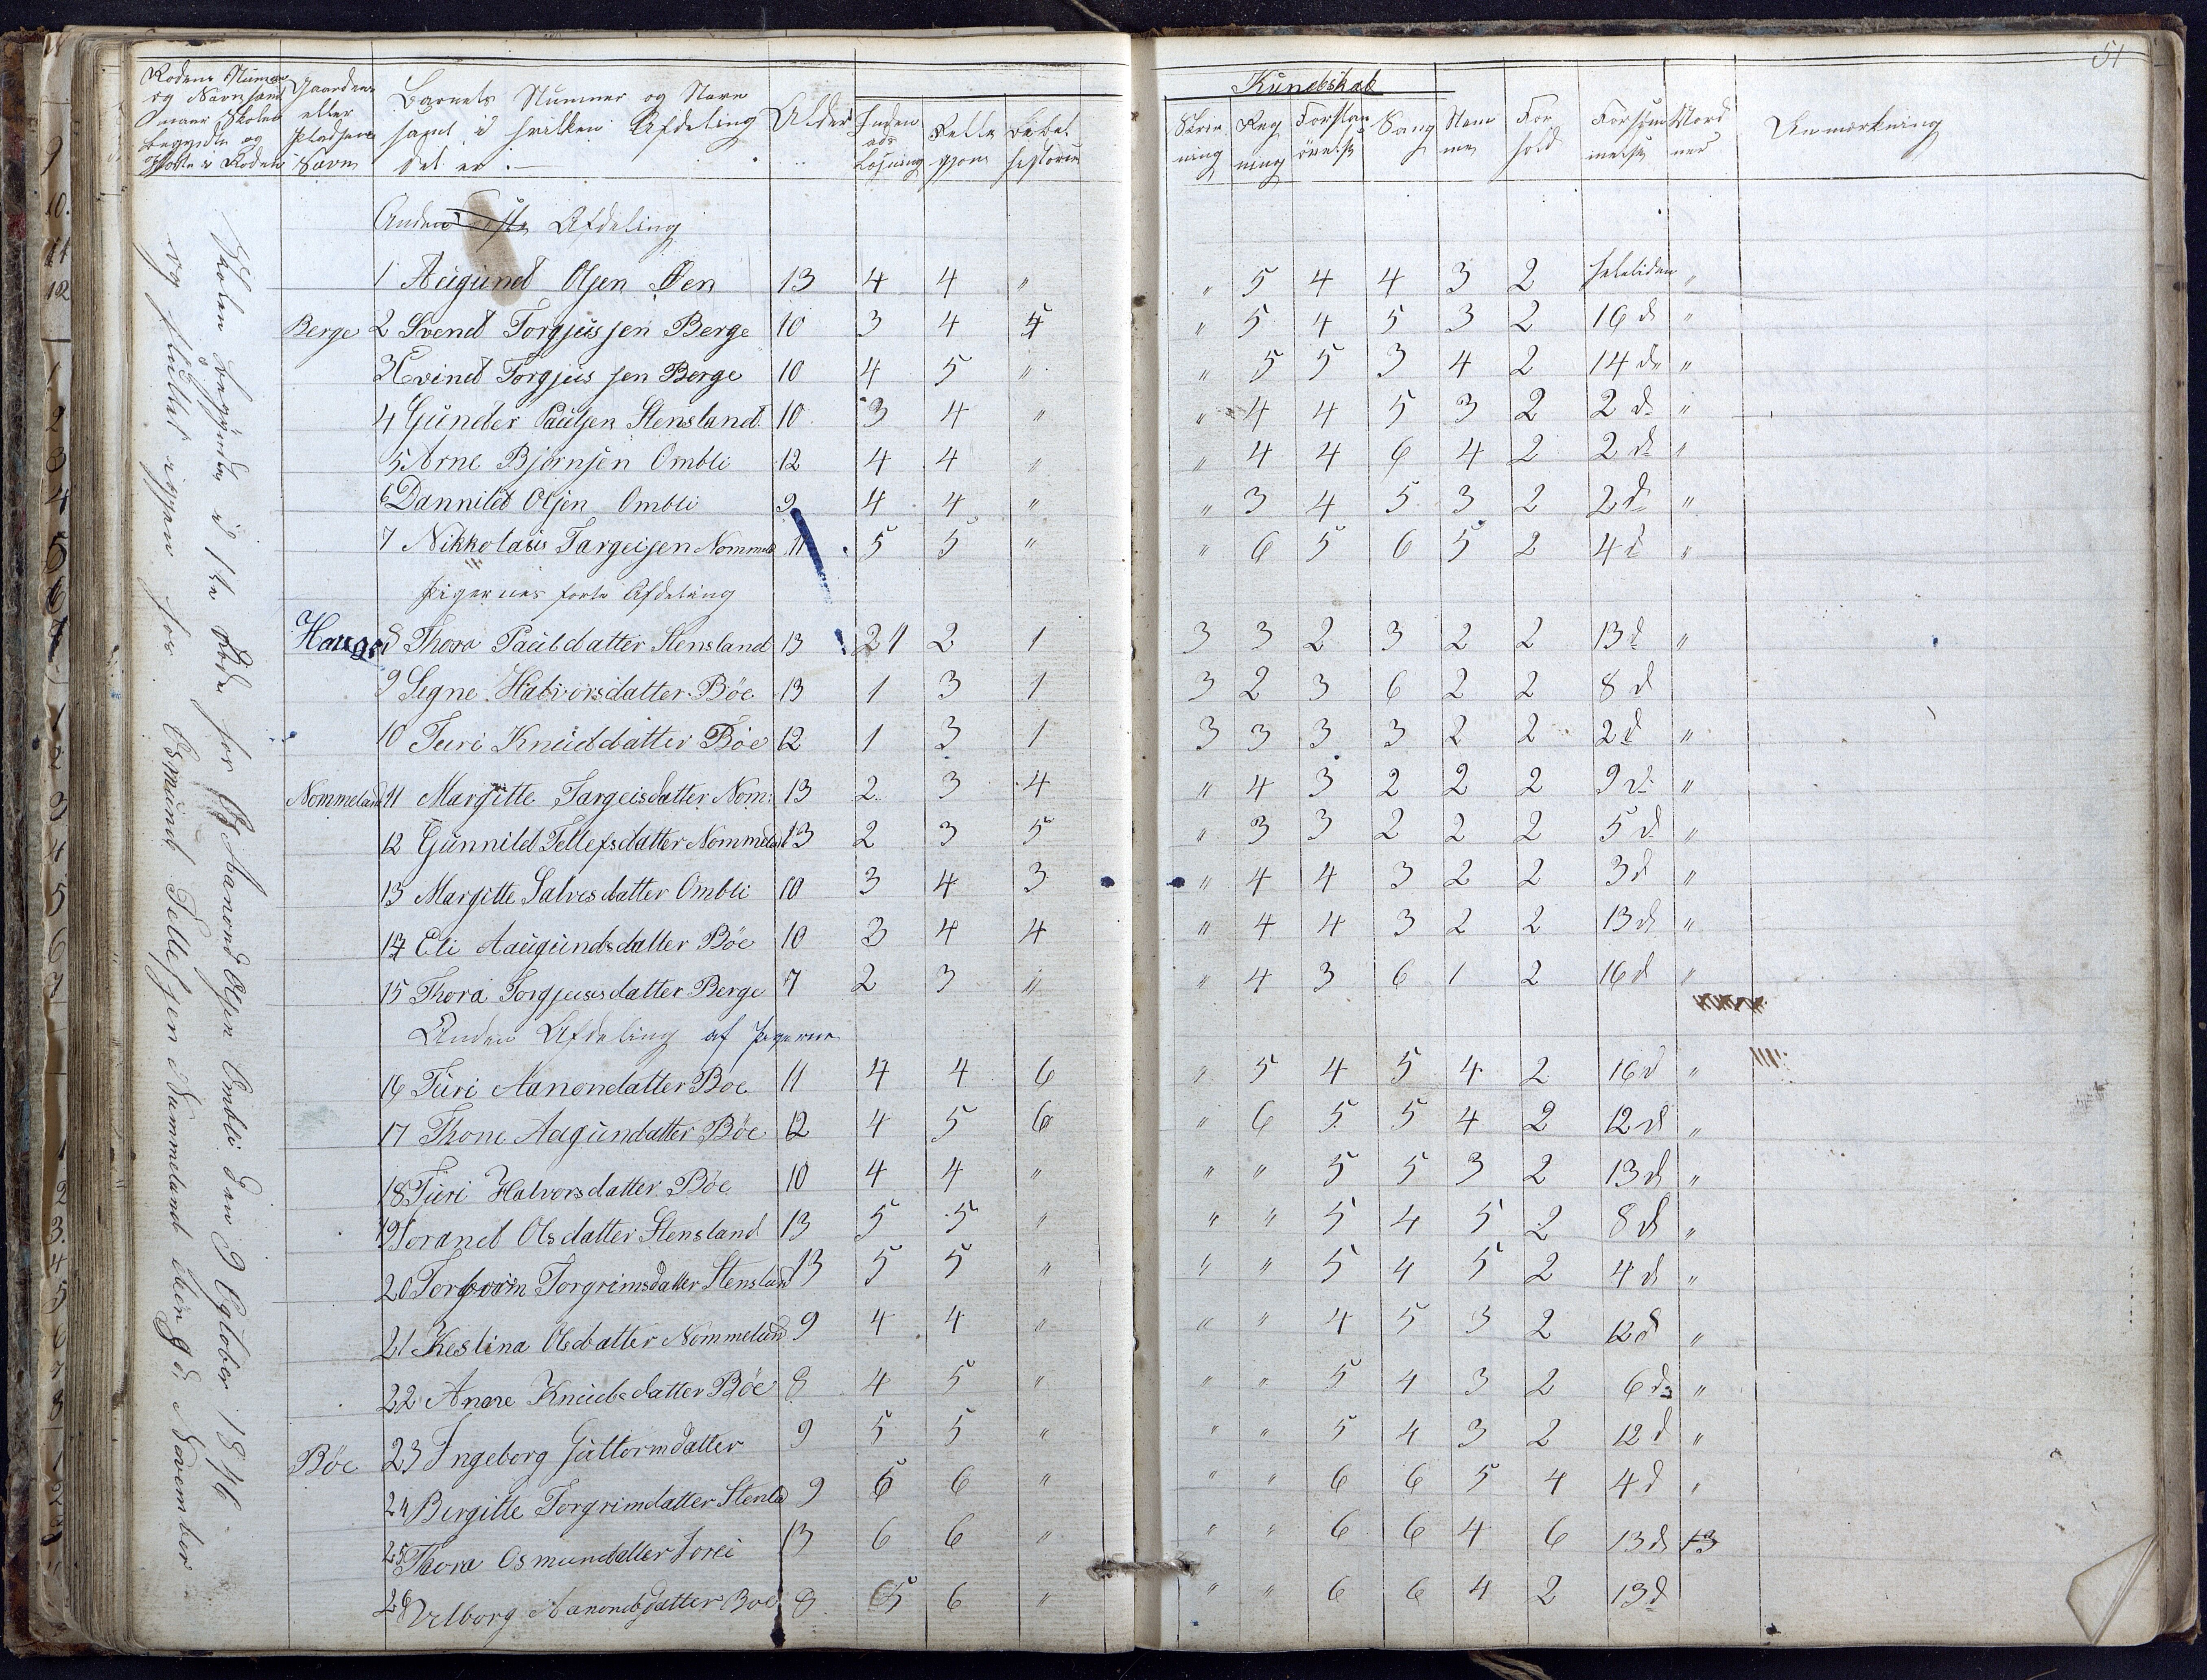 51
Rodens Nummer og Navn samt naar Skolen begyndte og sluttede i Roden
Gaardens eller Pladsens Navn
Barnets Nummer og Navn samt i hvilken Afdeling det er.
Alder
Inden ads Læsning
Religjon
Bibel historie
Kundskab
Skrivning
Regning
Forstandsøvelse
Sang
Nemme
Forhold
Forsømmelse
Anmærkning
Skolen begyndte i 1ste Rode for Aanond Olsen Ombli den 9 Octobor 1846
og sluttet igjen hos Osmund Tellefsen Nummeland den 9 d. November
Anden Afdeling
1 Augund Olsen Øen 13 4 4 " " 5 4 4 3 2 heletiden "
Berge 2 Svend Torgjussen Berge 10 3 4 4 " 5 4 5 3 2 16 d "
3 Evind Torgjussen Berge 10 4 5 " " 5 5 3 4 2 14 d "
4 Gunder Paulsen Stensland 10 3 4 " " 4 4 5 3 2 2 d "
5 Arne Bjørnsen Ombli 12 4 4 " " 4 4 6 4 2 2 d "
6 Dannild Olsen Ombli 9 4 4 " " 3 4 5 3 2 2 d "
7 Nikkolaus Targeisen Nommeld 11 5 5 " " 6 5 6 5 2 4 d "
Pigernes første Afdeling
Hauge 8 Thora Pauldatter Stensland 13 21 2 1 3 3 2 3 2 2 13 d "
9 Segne Halvorsdatter Bøe 13 1 3 1 3 2 3 6 2 2 8 d
10 Turi Knuddatter Bøe 12 1 3 1 3 3 3 3 2 2 2 d "
Nommeland 11 Margitte Targeisdatter Nom: 13 2 3 4 " 4 3 2 2 2 9 d "
12 Gunnild Tellefsdatter Nommeland 13 2 3 5 " 3 3 2 2 2 5 d "
13 Margitte Salvesdatter Ombli 10 3 4 3 " 4 4 3 2 2 3 d "
14 Eli Aaugundsdatter Bøe 10 3 4 4 " 4 4 3 2 2 13 d "
15 Thora Torgjusesdatter Berge 7 2 3 " " 4 3 6 1 2 16 d "
Anden Afdeling af Pigerne
16 Turi Aanondatter Boe 11 4 4 6 " 5 4 5 4 2 16 d "
17 Thone Aagundatter Bøe 12 4 5 6 " 6 5 5 4 2 12 d "
18 Turi Halvorsdatter Bøe 10 4 4 " " " 5 5 3 2 13 d "
19 Torand Olsdatter Stensland 13 5 5 " " " 5 4 5 2 8 d "
20 Torborn Torgrimsdatter Stensland 13 5 5 " " " 5 4 5 2 4 d "
21 Kestina Olsdatter Nommeland 9 4 4 " " " 4 5 3 2 12 d "
22 Anne Knudsdatter Bøe 8 4 5 " " " 5 4 3 2 6 d "
Bøe 23 Ingeborg Guttormdatter 9 5 5 " " " 5 4 3 2 12 d "
24 Birgitte Torgrimdatter Stenld 9 6 6 " " " 6 6 5 4 4 d "
25 Thora Osmundatter 13 6 6 " " " 6 6 4 6 13 d 13
26 Velborg Aanondsdatter Boe 8 5 6 " " " 6 6 4 2 13 d